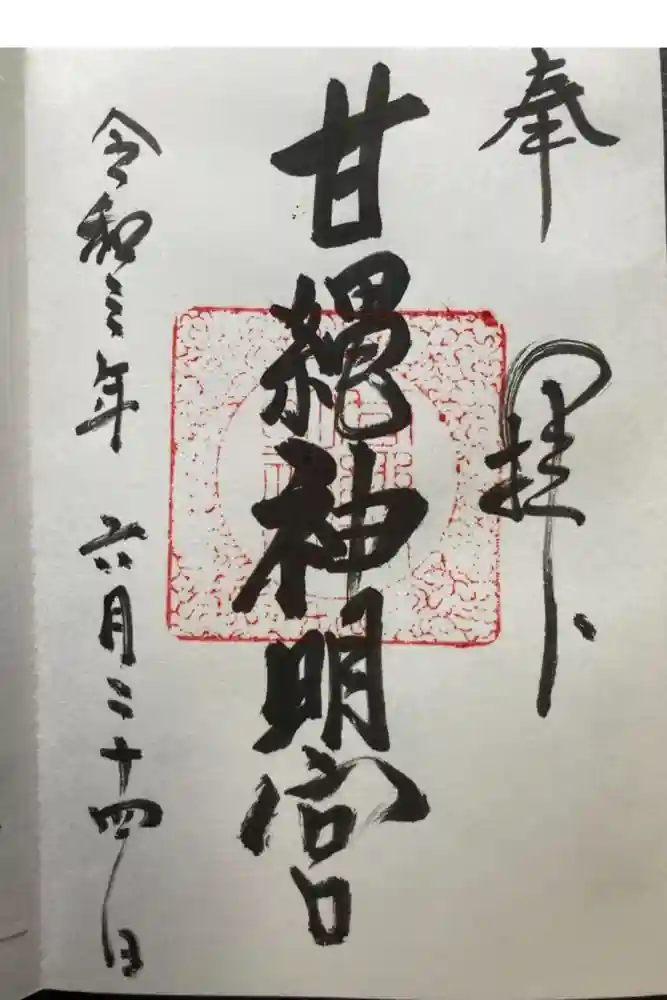 奉拝
甘縄神明宮
令和三年六月二十四日